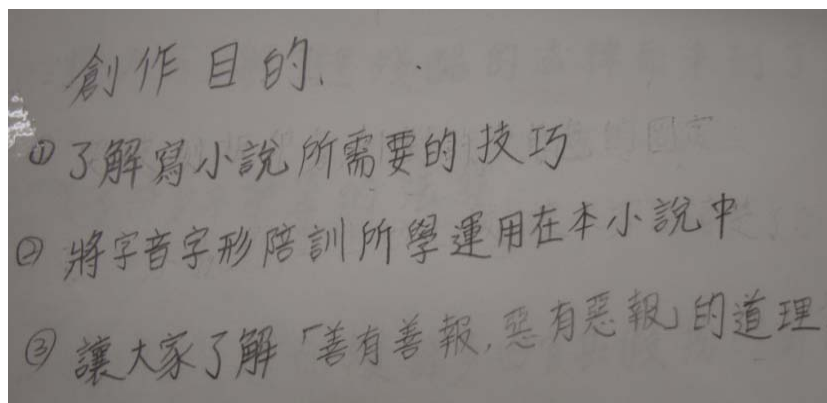 創作目的.
①了解寫小說所需要的技巧
②將字音字形陪訓所學運用在本小說中
③讓大家了解「善有善報,惡有惡報」的道理